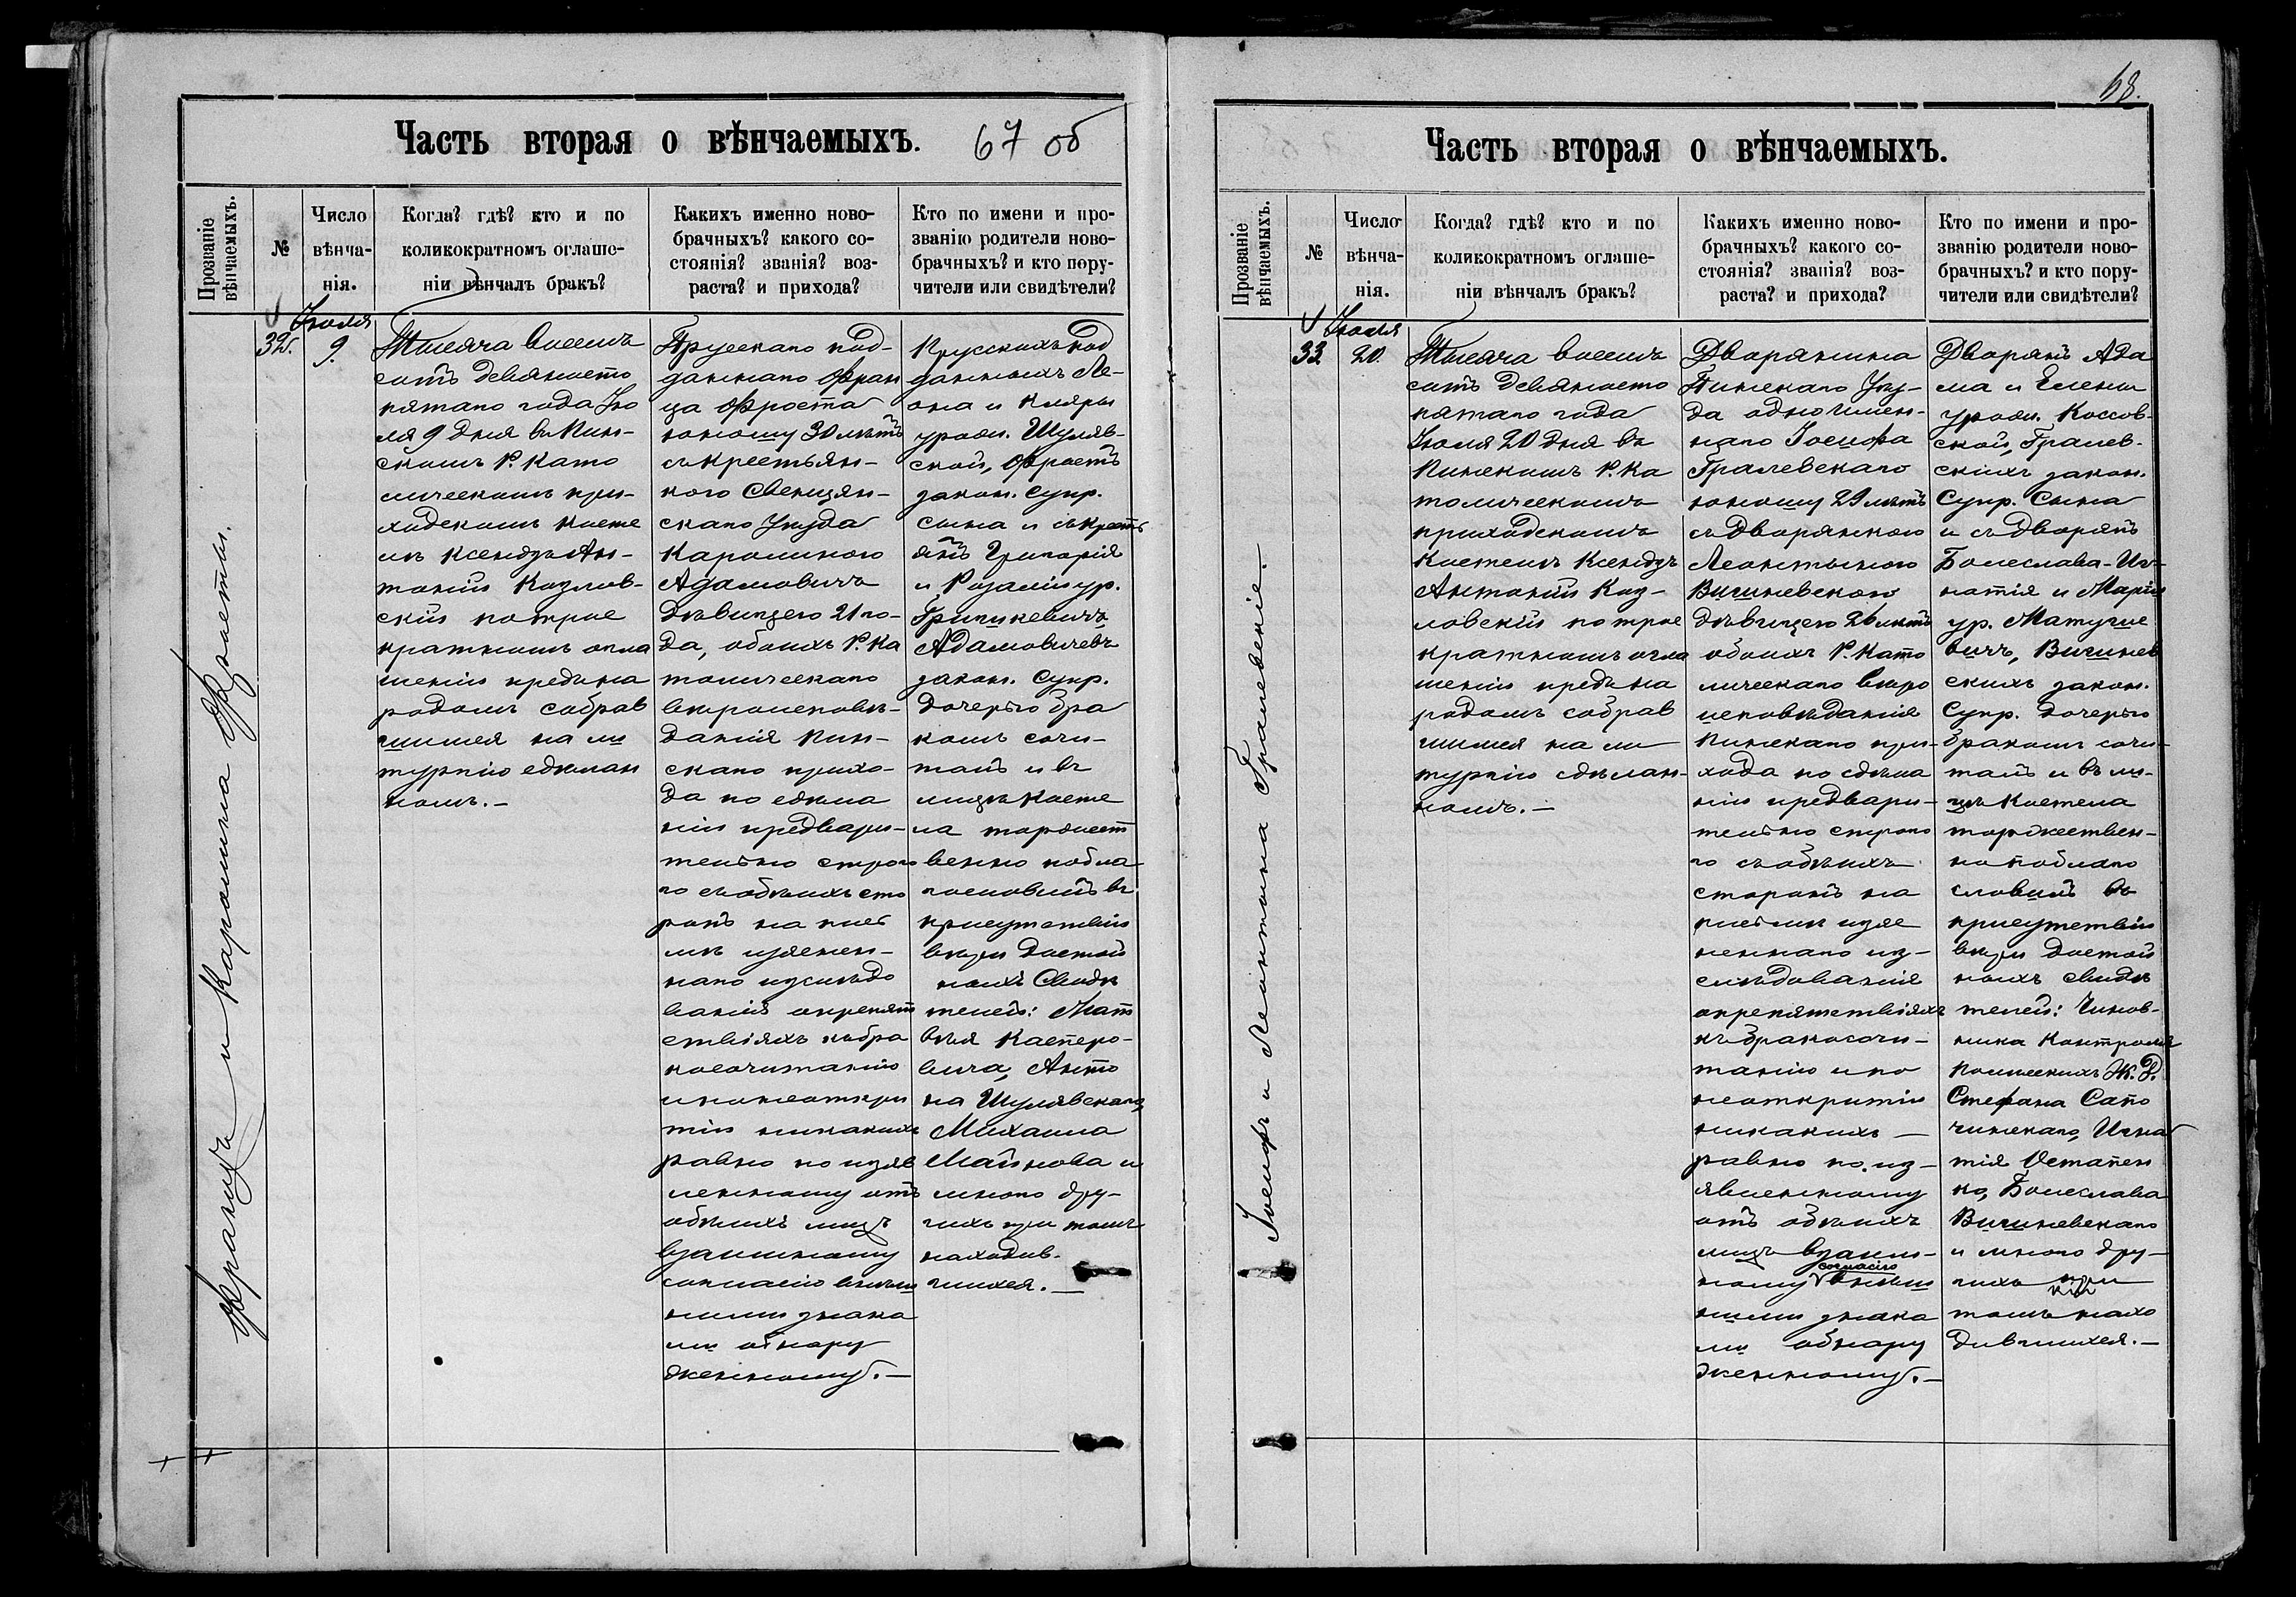 Часть вторая о вѣнчаемыхъ.
67 об
Прозваніе вѣнчаемыхъ.
№
Число вѣнча-
нія.
Когда? гдѣ? кто и по
коликократномъ оглаше-
ніи вѣнчалъ бракъ?
Какихъ именно ново-
брачныхъ? какого со-
стоянія? званія? воз-
раста? и прихода?
Кто по имени и про-
званію родители ново-
брачныхъ? и кто пору-
чители или свидѣтели?
Францъ и Каролина Фростъ.
32.
Іюля
9.
Тысяча восемь
сотъ девяносто
пятаго года Ію
ля 9 дня въ Пин-
скомъ Р. Като
лическомъ при-
ходскомъ косте
лѣ Ксендзъ Ан-
тоній Козлов-
скій по трое
кратномъ огла
шеніи предъ на
родомъ собрав
шимся на ли
тургію сдѣлан
номъ.—
Прусскаго под-
даннаго Фран
ца Фроста
юношу 30 лѣтъ
съ крестьян-
кою Свенцян-
скаго Уѣзда
Каролиною
Адамовичъ
дѣвицею 21 го-
да, обоихъ Р. Ка
толическаго
вѣроисповѣ-
данія Пин-
скаго прихо-
да по сдѣла
ніи предвари-
тельно строго
го съ обѣихъ сто
ронъ на пись
мѣ изъясен-
наго изслѣдо
ванія опрепят
ствіяхъ къ бра
косочитанію
и по неоткры
тіи никакихъ
равно по изъяв
ленному отъ
обѣихъ лицъ
взаимному
согласію внѣш
ними знака
ми обнару
женному.—
Прусскихъ под
данныхъ Ле-
она и Клары
урожд. Шуляв-
ской, Фростъ
закон. Супр.
сына и съ Крестъ
янъ Григорія
и Розаліи ур.
Гришкевичъ
Адамовичевъ
закон. Супр.
дочерью бра
комъ сочи-
талъ и въ
лицѣ косте
ла торжест
венно побла
гословилъ въ
присутствіи
вѣры достой
ныхъ Свидѣ
телей: Мат
вѣя Касперо-
вича, Анто
на Шулявскаго,
Михаила
Майнова и
много дру-
гихъ при томъ
находив-
шихся.—
68.
Часть вторая о вѣнчаемыхъ.
Прозваніе вѣнчаемыхъ.
№
Число
вѣнча-
нія.
Когда? гдѣ? кто и по
коликократномъ оглаше-
ніи вѣнчалъ бракъ?
Какихъ именно ново-
брачныхъ? какого со-
стоянія? званія? воз-
раста? и прихода?
Кто по имени и про-
званію родители ново-
брачныхъ? и кто пору-
чители или свидѣтели?
Іосифъ и Леонтина Гралевскіе.
33.
Іюля
20.
Тысяча восемь
сотъ девяносто
пятаго года
Іюля 20 дня въ
Пинскомъ Р. Ка
толическомъ
приходскомъ
Костелѣ Ксендзъ
Антоній Коз-
ловскій по трое
кратномъ огла
шеніи предъ на
родомъ собрав
шимся на ли
тургію сдѣлан-
номъ.—
Дворянина
Пинскаго Уѣз-
да одноимен-
наго Іосифа
Гралевскаго
юношу 29 лѣтъ
съ Дворянкою
Леонтиною
Вишневскою
дѣвицею 26 лѣтъ
обоихъ Р. Като
лическаго вѣро
исповѣданія
Пинскаго при-
хода по сдѣла
ніи предвари-
тельно строго
го съ обѣихъ
сторонъ на
письмѣ изъяс
неннаго из-
слѣдованія
опрепятствіяхъ
къ бракосочи-
танію и по
неоткрытіи
никакихъ —
равно по из-
явленному
отъ обѣихъ
лицъ взаим-
ному согласію внѣш
ними знака
ми обнару
женному.—
Дворянъ Ада
ма и Елены
урожд. Коссов-
ской, Гралев-
скихъ закон.
Супр. Сына
и съ Дворянъ
Болеслава-Иг-
натія и Маріи
ур. Матуше
вичъ, Вишнев
скихъ закон.
Супр. дочерью
бракомъ сочи-
талъ и въ ли-
цѣ Костела
торжествен-
но поблаго
словилъ въ
присутствіи
вѣры достой
ныхъ свидѣ
телей: Чинов-
ника Контроля
Полѣсскихъ Ж. Д.
Стефана Сапо
чинскаго, Игна
тія Остапен
ко, Болеслава
Вишневскаго
и много дру-
гихъ при
томъ нахо
дившихся.—